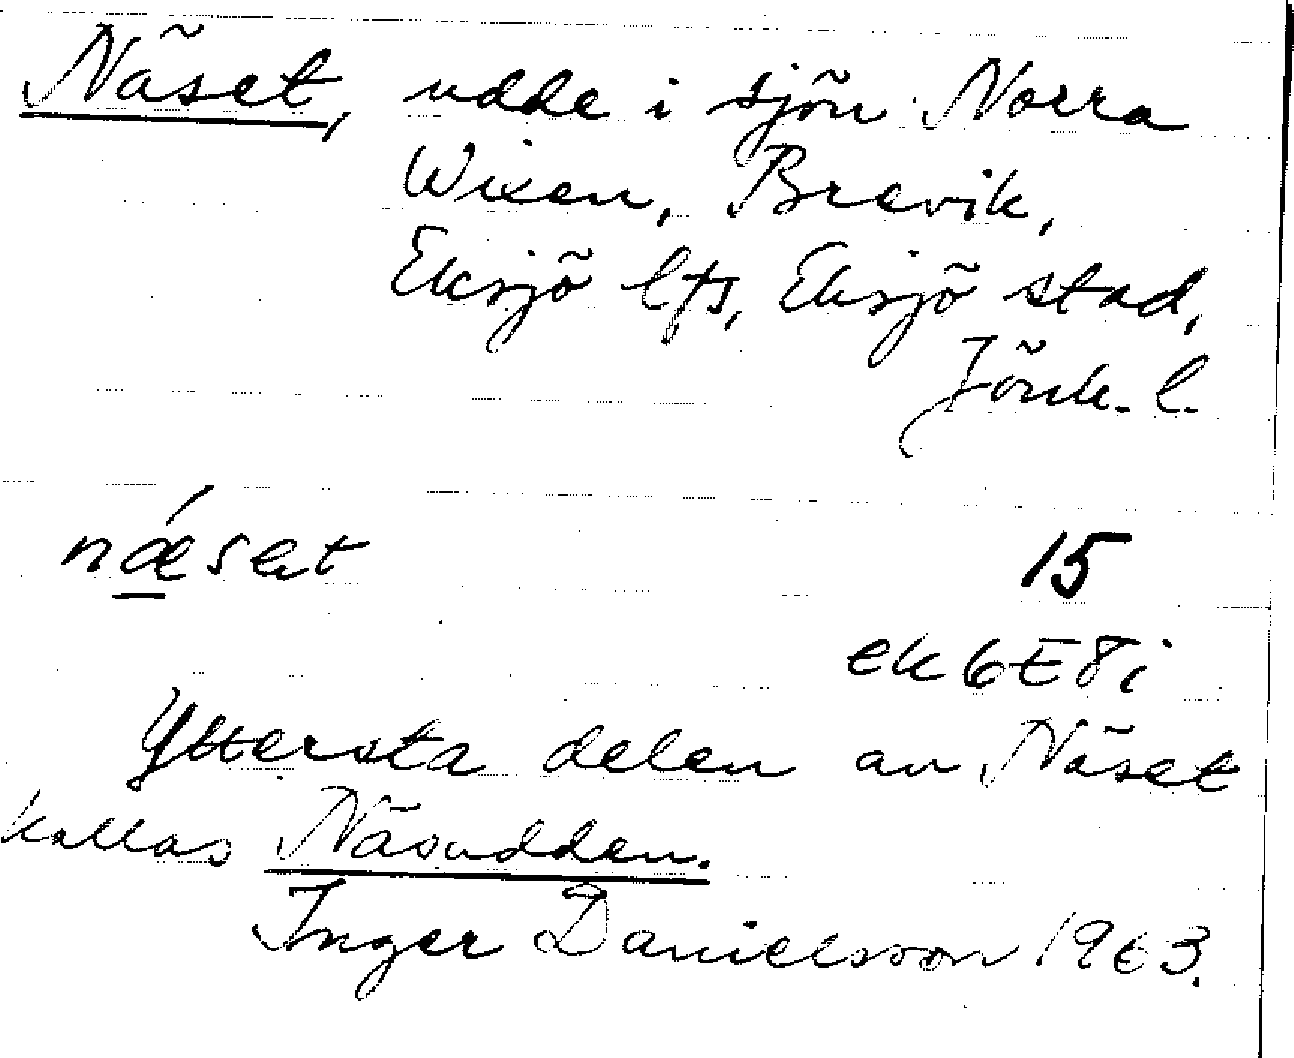 Näset, udde i sjön Norra
Wixen, Brevik,
Eksjö lfs, Eksjö stad,
Jönk. l.
nǽset 15
ek 6E8i
Yttersta delen av Näset
kallas Näsudden.
Inger Danielsson 1963.